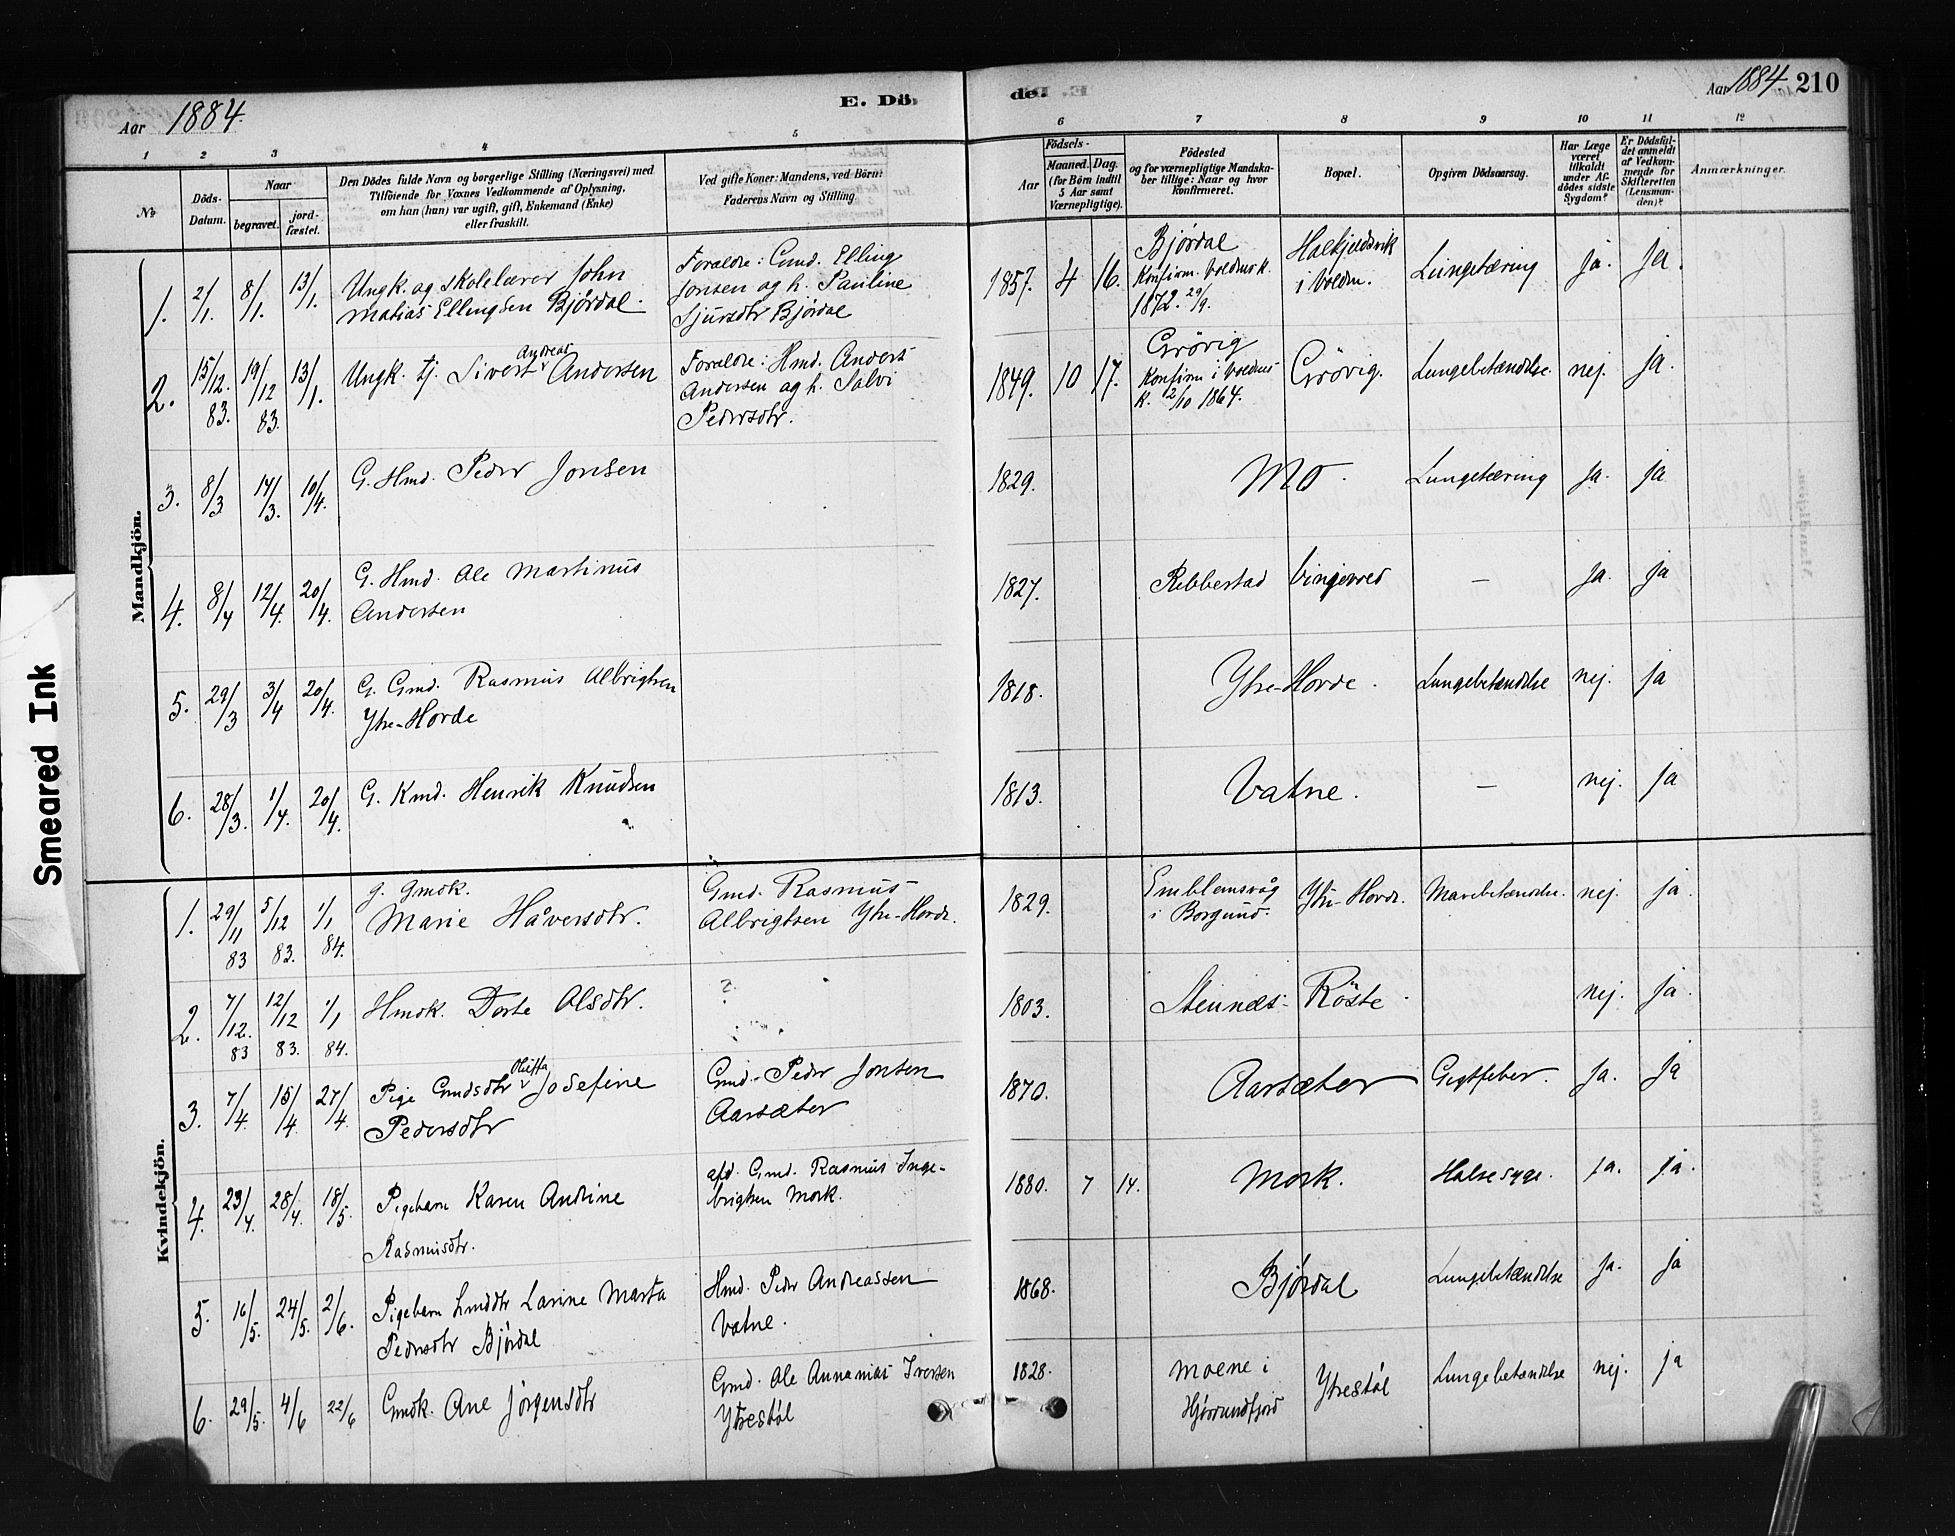 Aar 1884.
E. Dö-
de.
Aar 1884. 210
1 2 3 4 5 6 7 8 9 10 11 12
№
Döds-
Datum.
Naar
begravet.
jord-
fæstet.
Den Dödes fulde Navn og borgerlige Stilling (Næringsvei) med
Tilföiende for Voxnes Vedkommende af Oplysning,
om han (hun) var ugift, gift, Enkemand (Enke)
eller fraskilt.
Ved gifte Koner: Mandens, ved Börn:
Faderens Navn og Stilling.
Födsels-
Aar
Maaned. Dag.
(for Börn indtil
5 Aar samt
Værnepligtige).
Födested
og for værnepligtige Mandska-
ber tillige: Naar og hvor
konfirmeret.
Bopæl.
Opgiven Dödsaarsag.
Har Læge
været
tilkaldt
under Af-
dödes sidste
Sygdom?
Er Dödsfal-
det anmeldt
af Vedkom-
mende for
Skifteretten
(Lensman-
den)?
Anmærkninger.
Mandkjön.
1. 2/1. 8/1. 13/1. Ungk. og skolelærer John
Matias Ellingsen Bjørdal
Forældre: Gmd. Elling
Jonsen og h. Pauline
Sjursdtr Bjørdal
1857. 4 16.
Bjørdal
Konfirm. Voldens k.
1872. 29/9.
i Volden.
Lungetæring ja. ja.
2. 15/12. 83. 19/12 83. 13/1. Ungk. tj. Sivert Andreas Andersen
Forældre: Hmd. Anders
Andersen og h. Salvi
Pedersdtr.
1849. 10 17.
Grövig
Konfirm i Voldens
k. 2/10 1864.
Grövig. Lungebetændelse. nej. ja.
3. 8/3 14/3. 19/4. G. Hmd. Peder Jonsen
1829. Mo. Lungetæring ja. ja
4. 8/4 12/4. 20/4. G. Hmd. Ole Martinus
Andersen
1827. Rebbestad — ja. ja
5. 29/3 3/4 20/4. G. Gmd. Rasmus Albrigtsen
Ytre-Horde
1818. Ytre-Horde. Lungebetændelse nej. ja
6. 28/3. 1/4. 20/4. G. Kmd. Henrik Knudsen
1813. Vatne. — nej. ja
Kvindekjön.
1. 29/11 83 5/12 83. 1/1 84. g. Gmdk.
Marie Håversdtr.
Gmd. Rasmus
Albrigtsen Ytre-Horde.
1829. Emblemsvåg
i Borgund. Ytre-Horde. Mavebetændelse. nej. ja.
2. 7/12. 83 12/12 83. 1/1 84. Hmdk. Dorte Olsdtr.
?
1803. Steinnæs- Röste. nej. ja.
3. 7/4. 15/4 27/4. Pige Gmdsdtr Oluffa Josefine
Pedersdtr
Gmd. Peder Jonsen
Aarsæter
1870. Aarsæter Gigtfeber. ja. ja
4. 23/4. 28/4. 18/5. Pigebarn Karen Andrine
Rasmusdtr.
afd. Gmd. Rasmus Inge-
brigtsen Mork.
1880. 7 14. Mork. Halsesyge. ja. ja.
5. 16/5. 24/5. 2/6. Pigebarn Larine Marta
Pedersdtr Bjørdal
Hmd. Peder Andreassen
Vatne.
1868. Bjørdal Lungebetændelse ja. ja
6. 29/5. 4/6 22/6 Gmdk. Ane Jörgensdtr
Gmd. Ole Annanias Iversen
Ytrestöl
1828. Moene i
Hjörundfjord Ytrestöl Lungebetændelse nej. ja
Smeared Ink